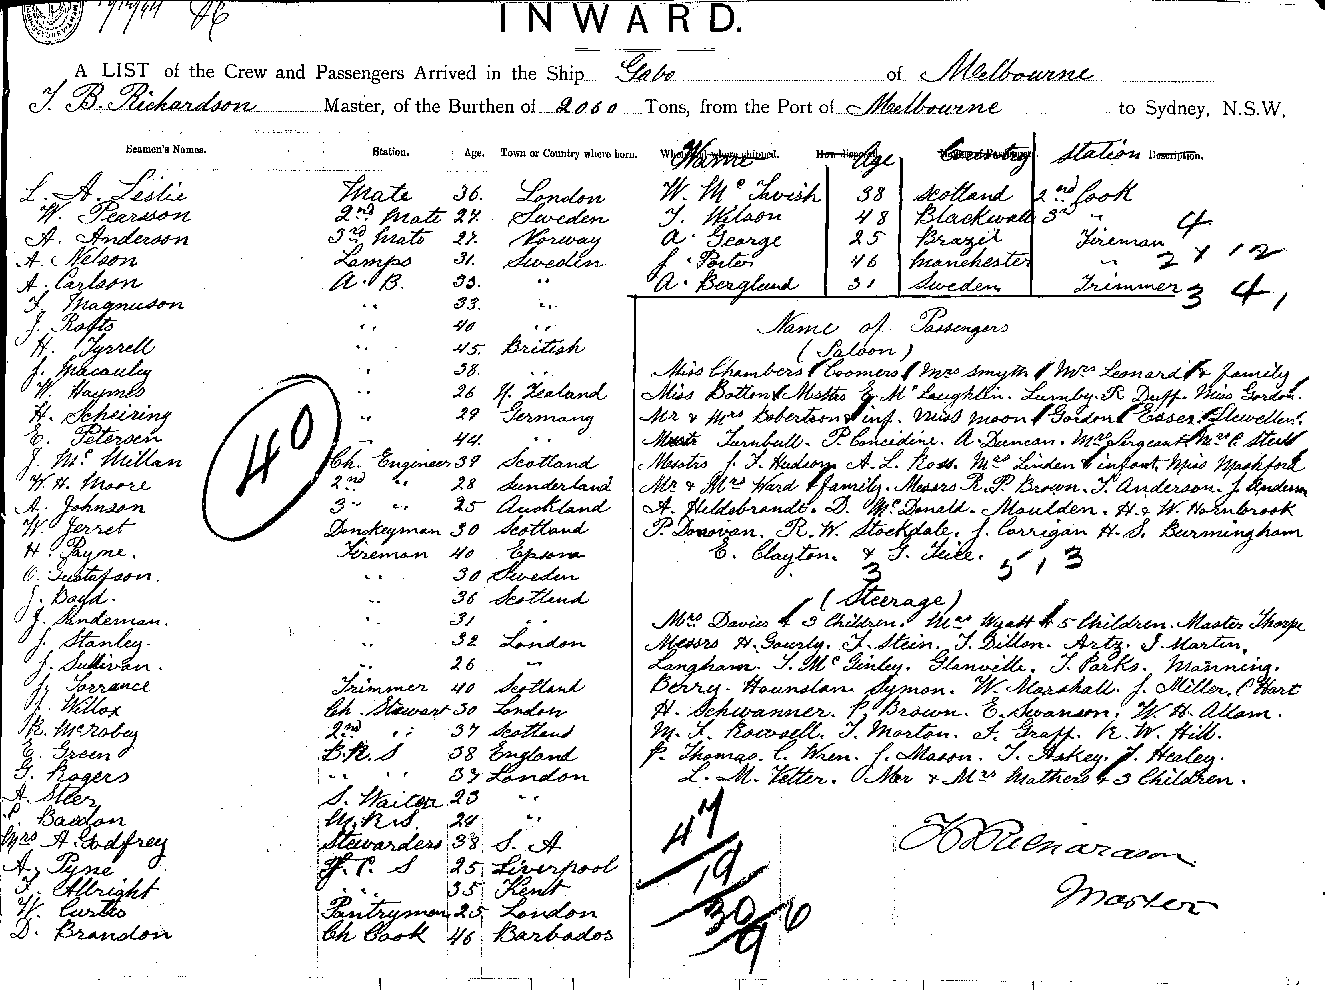 INWARD.
A LIST of the Crew and Passengers Arrived in the Ship Gabo of Melbourne
T. B. Richardson Master, of the Burthen of 2060 Tons, from the Port of Melbourne to Sydney, N.S.W.
Seamen's Names. Station. Age. Town or Country where born. Name Age Country Station Description.
L. A. Leslie Mate 36 London W. McTavish 38 Scotland 2nd Cook
W. Pearsson 2nd Mate 27 Sweden T. Wilson 48 Blackwall 3rd "
A. Anderson 3rd Mate 27 Norway A. George 25 Brazil Fireman
A. Nelson Lamps 31 Sweden J. Porter 46 Manchester "
A. Carlson A. B. 33 " A. Berglund 31 Sweden Trimmer
4
2 + 12
3 4 1
T. Magnuson " 33 "
J. Rofts " 40 "
H. Tyrrell " 45 British
J. Macauley " 38 "
W. Haymes " 26 N. Zealand
H. Scheiring " 29 Germany
E. Petersen " 44 "
J. McMillan Ch. Engineer 39 Scotland
W. H. Moore 2nd " 28 Sunderland
A. Johnson 3 " 25 Auckland
W. Jerret Donkeyman 30 Scotland
H. Payne. Fireman 40 Epsom
C. Gustafson. " 30 Sweden
J. Boyd. " 36 Scotland
J. Lindeman. " 31 "
J. Stanley. " 32 London
J. Sullivan. " 26 "
J. Torrance Trimmer 40 Scotland
J. Willox Ch. Stewart 30 London
R. McRobey 2nd " 37 Scotland
E. Green B.R.S 38 England
G. Rogers " " 37 London
A. Steer S. Waiter 23 "
Baddon M.R.S. 24 "
Mrs A. Godfrey Stewardess 38 S. A
A. Pyne F. C. S 25 Liverpool
F. Albright " " 35 Kent
W. Curtis Pantryman 25 London
D. Brandon Ch Cook 46 Barbados
40
Name of Passengers
(Saloon)
Miss Chambers Coomers Mrs Smyth Mrs Leonard & family
Miss Botten McLaughlin. Lumby. R Duff. Miss Gordon.
Mr & Mrs Robertson & inf. Miss Moon Gordon Esser. Llewellen.
Turnbull. P. Concidine. A. Duncan. Mrs Sirgeant
Messrs J. T. Hudson A. L. Ross. Mrs Linden & infant. Miss Mashford
Mr & Mrs Ward & family. Messrs R. P. Brown. T. Anderson. J.
A. Hildebrandt. D. McDonald. Moulden. H. & W. Hornbrook
P. Donovan. R. W. Stockdale. J. Corrigan H. S. Burmingham
E. Clayton. &
3 5 1 3
(Steerage)
Mrs Davies & 3 Children. Mrs Wyatt & 5 Children. Master Thorpe
Messrs H. Gourly. F. Stein. T. Dillon. Artz. J. Martin,
Langham. T. McGinley. Glanville. T. Parks. Manning.
Berry. Hounslan. Symon. W. Marshall. J. Miller. C Hart
H. Schwanner. P. Brown. E. Swanson. W. H. Allam.
M. F. Rowsell. T. Morton. F. Graff. R. W. Hill.
P. Thomas. C. Wren. J. Mason. T. Askey. J. Healey.
L. M. Vetter. Mr & Mrs Mathers & 3 Children.
47
19
30 6
9
T B Richardson
Master